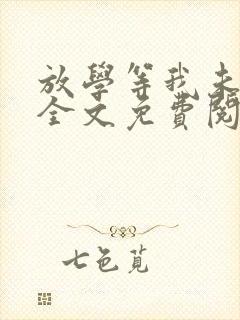 放學等我未
全文免費閱
七色莧